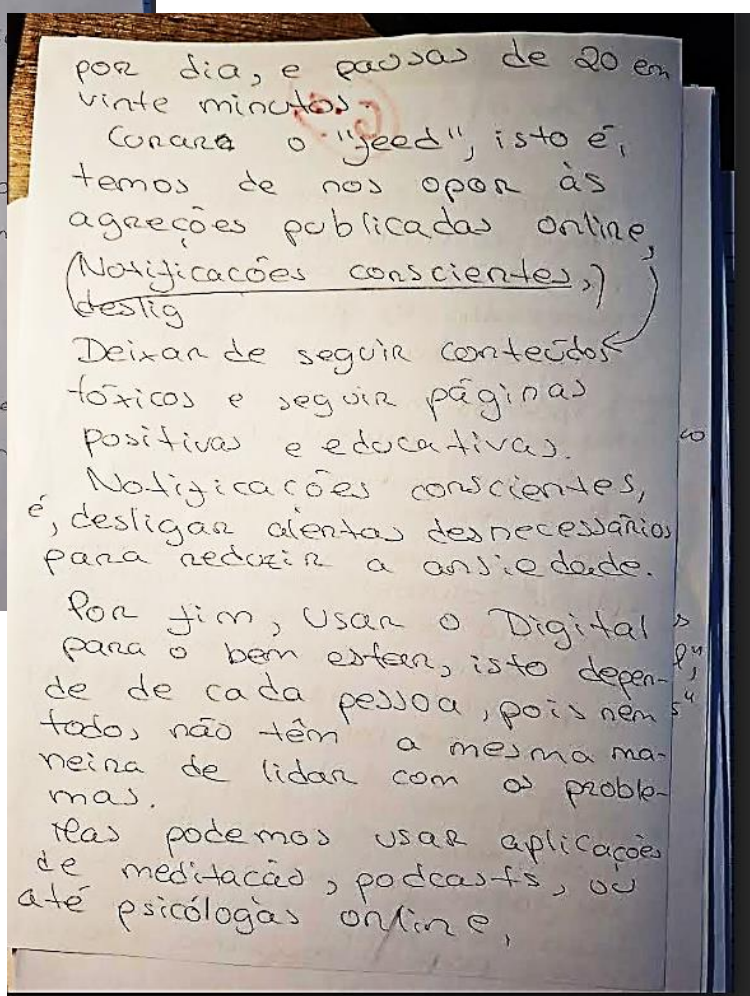 por dia, e pausas de 20 em
vinte minutos.
o "feed", isto é,
temos de nos opor às
agreções publicadas online,
(Notificacões conscientes,)
deslig
Deixar de seguir conteúdos
tóxicos e seguir páginas
positivas e educativas.
Notificacões conscientes,
é, desligar alertas desnecessários
para reduzir a ansiedade.
Por fim, usar o Digital
para o bem estar, isto depen-
de de cada pessoa, pois nem
todos não têm a mesma ma-
neira de lidar com os proble-
mas.
Mas podemos usar aplicações
de meditacão, podcasts, ou
até psicólogas online,